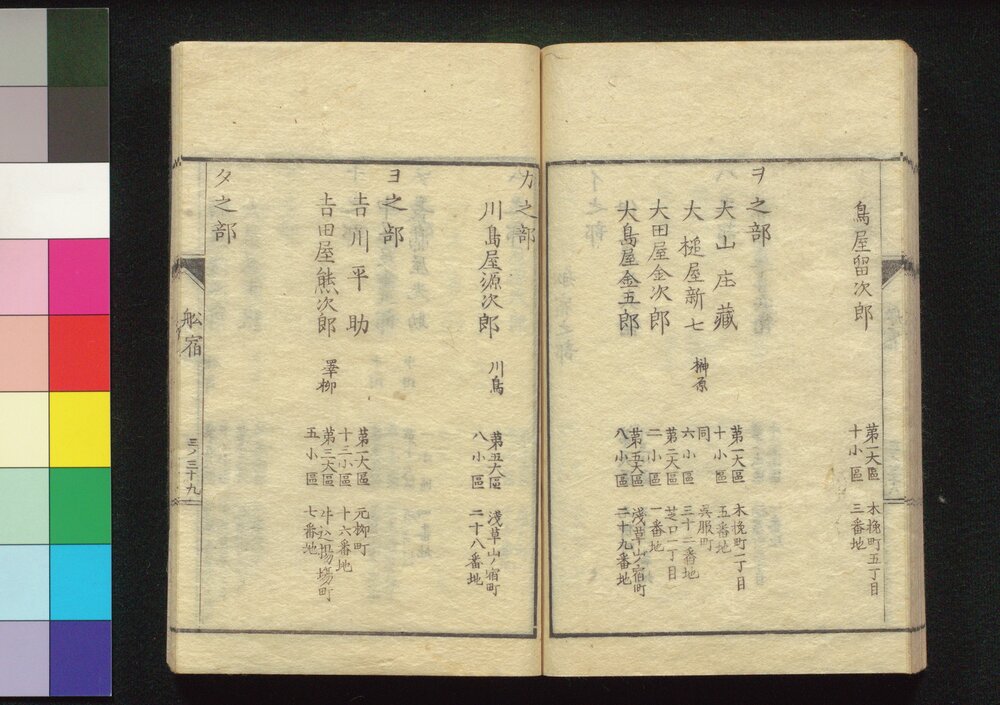 鳥屋留次郎
第一大區 木挽町五丁目
十小區 三番地
ヲ之部
大山庄藏
第一大區 木挽町一丁目
十小區 五番地
大槌屋新七 榊原
同 呉服町
六小區 三十二番地
大田屋金次郎
第二大區 芝口一丁目
二小區 一番地
大島屋金五郎
第五大區 淺草山ノ宿町
八小區 二十九番地
カ之部
川島屋源次郎 川島
第五大區 淺草山ノ宿町
八小區 二十八番地
ヨ之部
吉川平助
第一大區 元柳町
十三小區 十六番地
吉田屋熊次郎 澤柳
第三大區 牛込揚場町
五小區 七番地
タ之部
舩宿
三ノ三十九